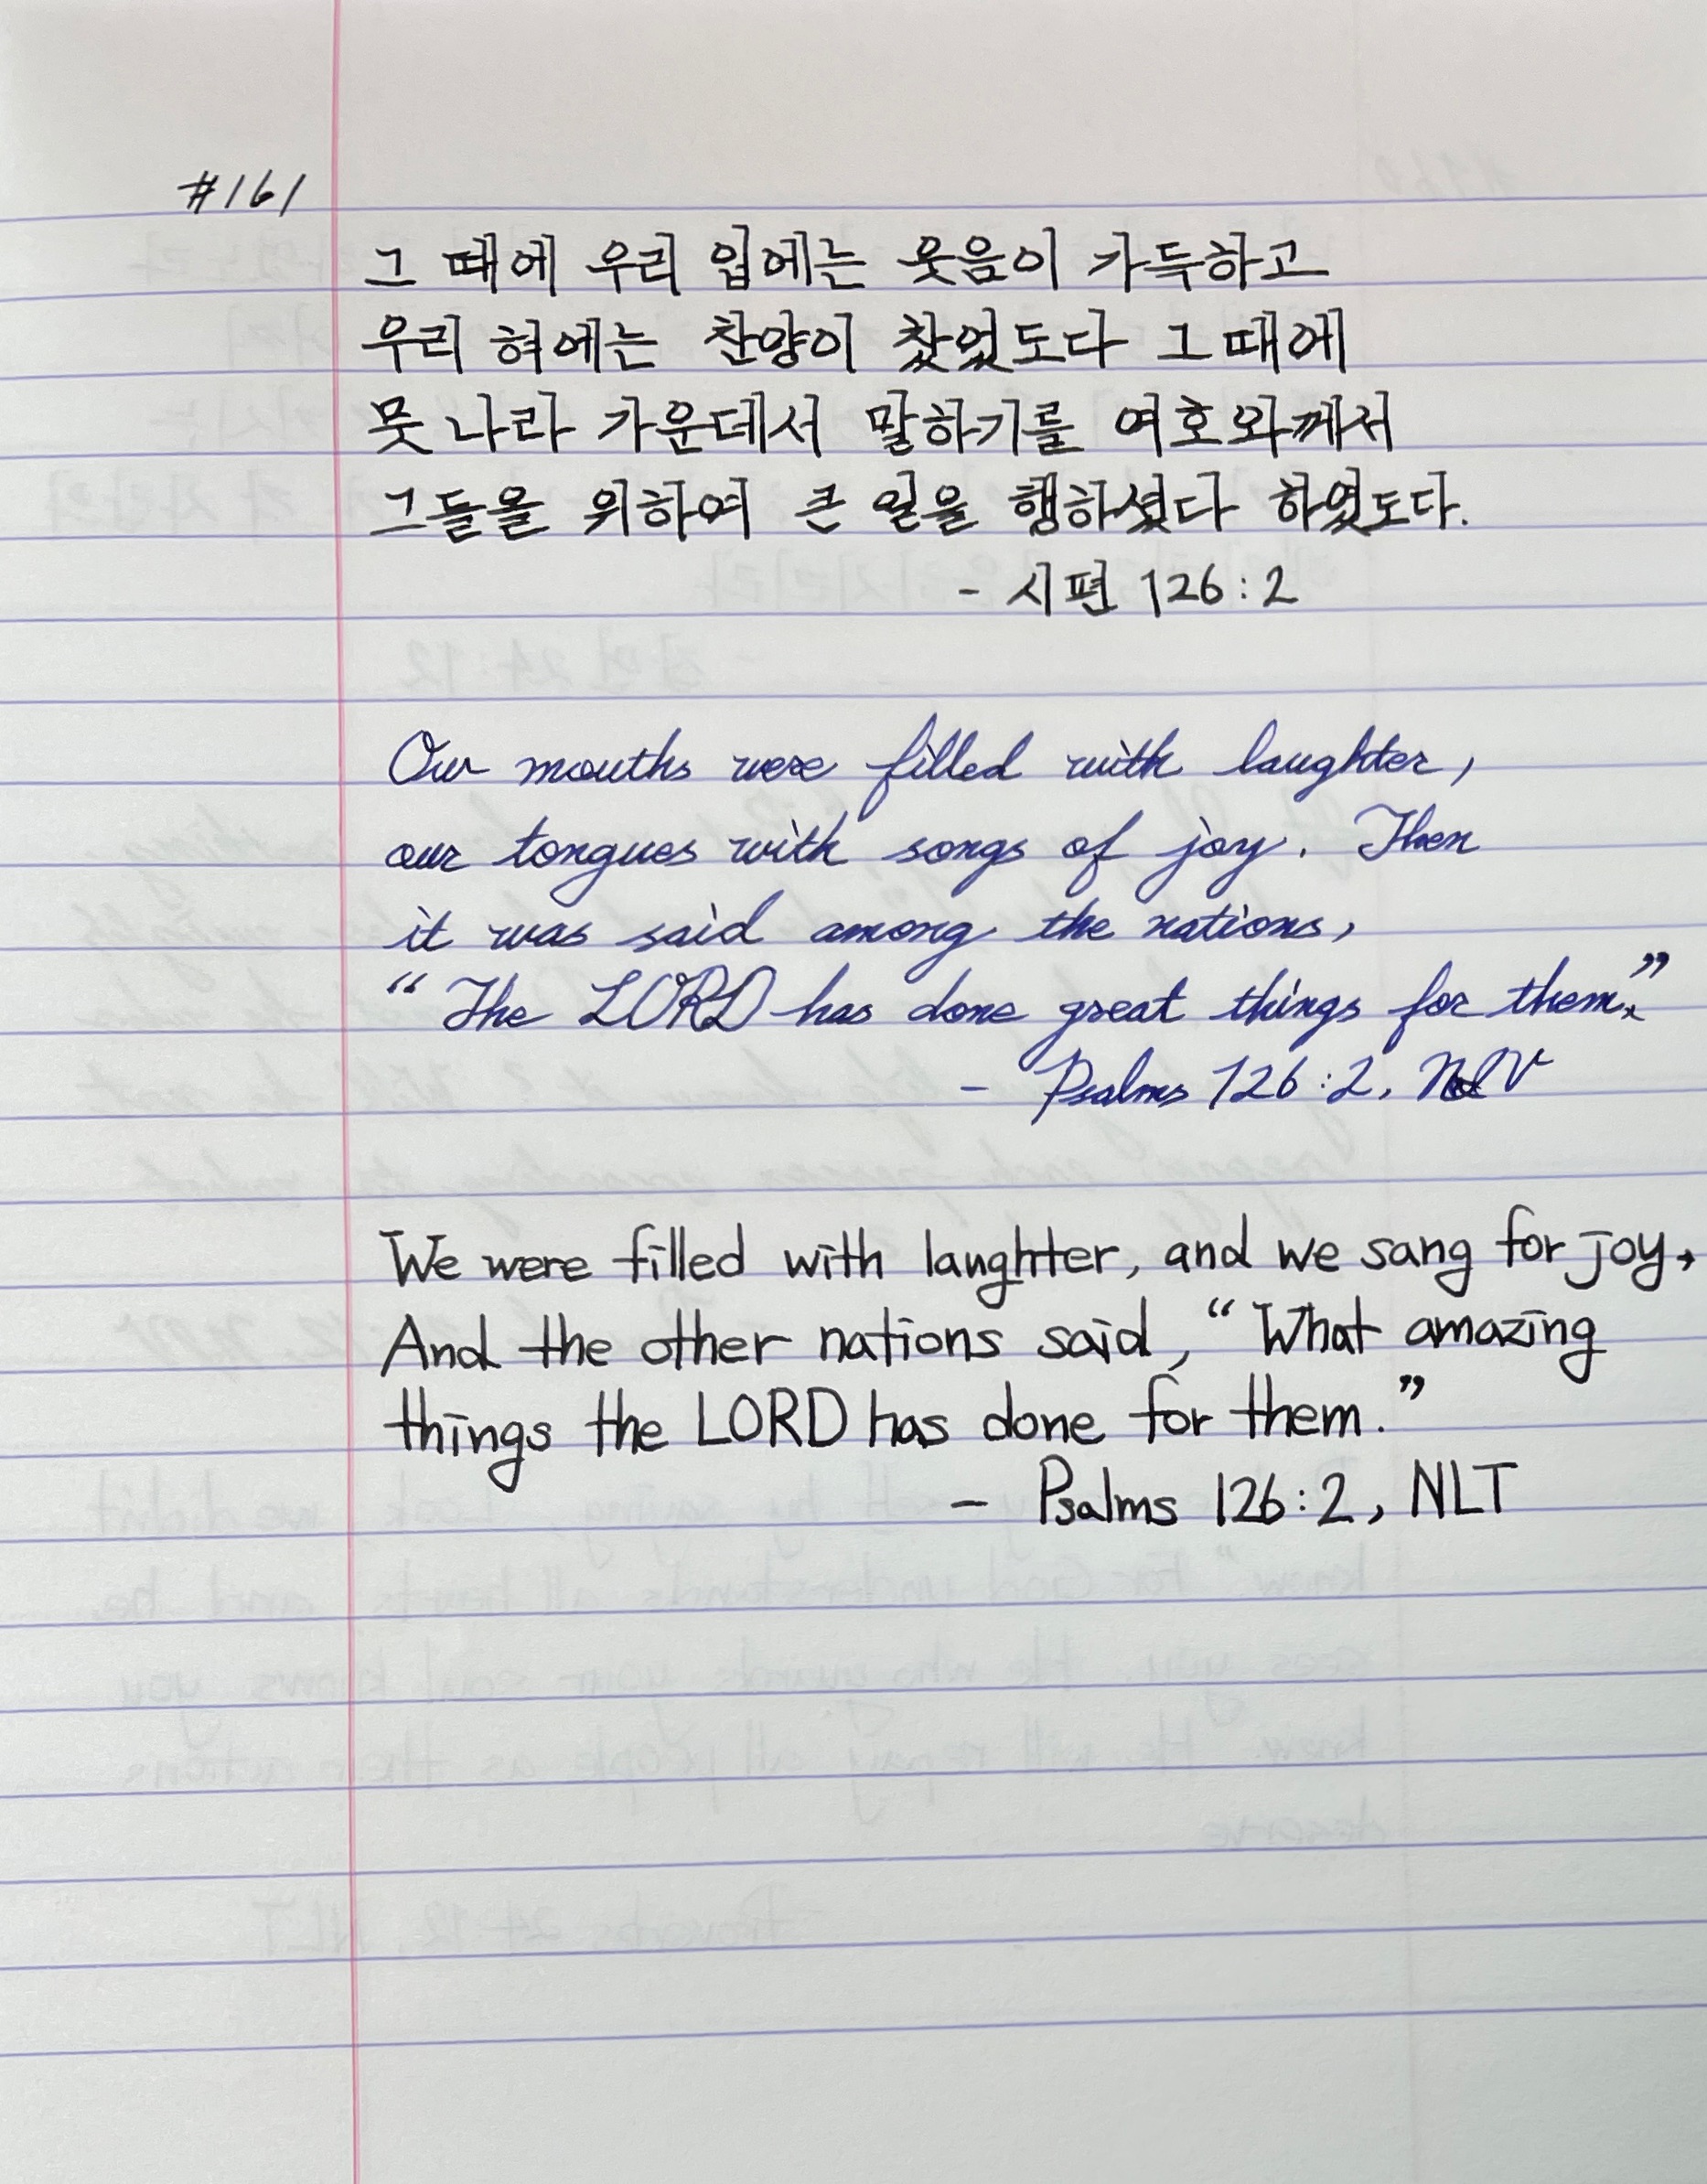 #161
그 때에 우리 입에는 웃음이 가득하고
우리 혀에는 찬양이 찼었도다 그 때에
뭇 나라 가운데서 말하기를 여호와께서
그들을 위하여 큰 일을 행하셨다 하였도다.
- 시편 126:2
Our mouths were filled with laughter,
our tongues with songs of joy. Then
it was said among the nations,
“The LORD has done great things for them.”
- Psalms 126:2, NIV
We were filled with laughter, and we sang for joy,
And the other nations said, “What amazing
things the LORD has done for them.”
- Psalms 126:2, NLT